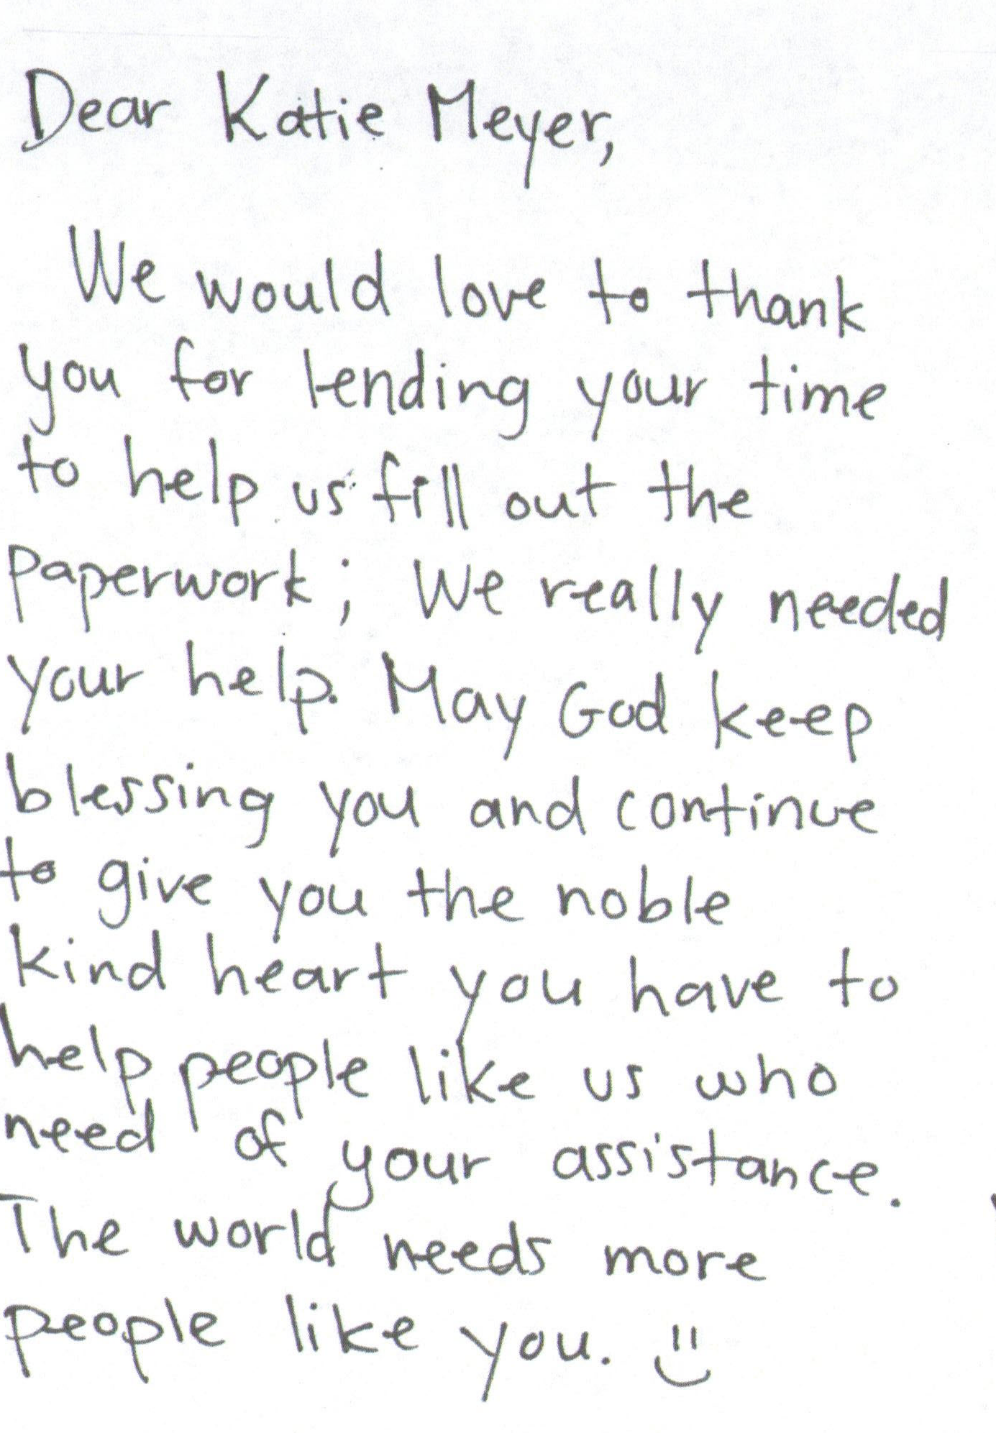 Dear Katie Meyer,
We would love to thank
you for lending your time
to help us fill out the
paperwork; We really needed
your help. May God keep
blessing you and continue
to give you the noble
kind heart you have to
help people like us who
need of your assistance.
The world needs more
people like you. :)